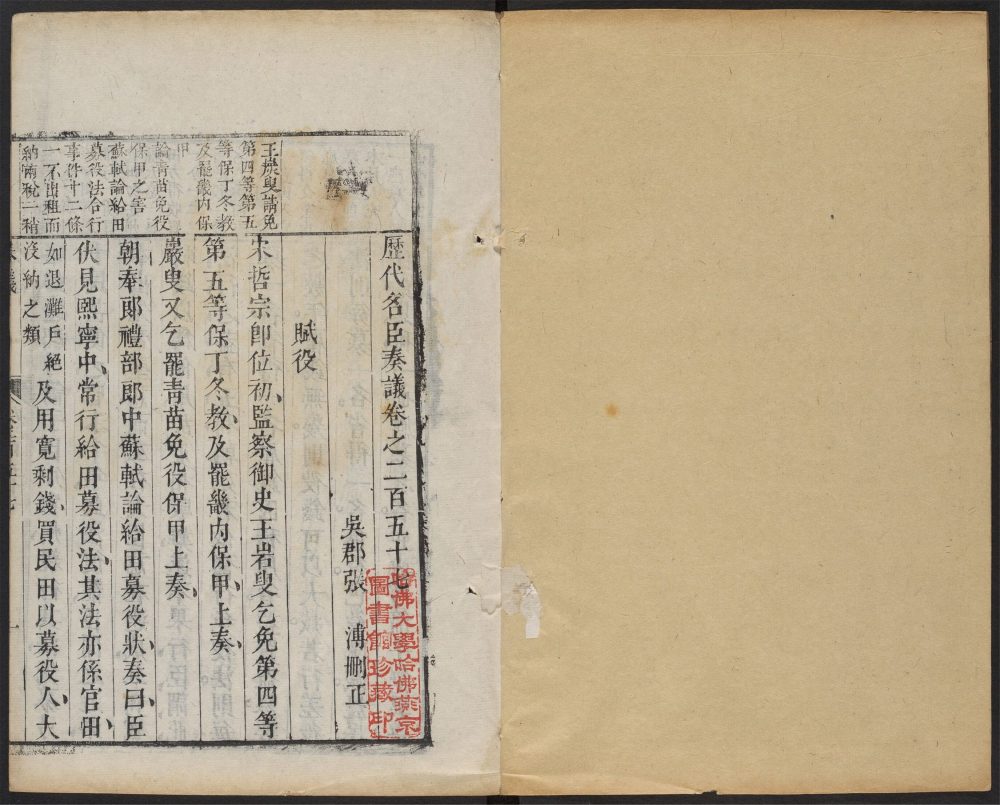 歷代名臣奏議卷之二百五十七
吳郡張　溥刪正
賦役
宋哲宗卽位初監察御史王岩叟乞免第四等
第五等保丁冬教及罷畿内保甲上奏
巖叟又乞罷青苗免役保甲上奏
朝奉郎禮部郎中蘇軾論給田募役狀奏曰臣
伏見熙寧中常行給田募役法其法亦係官田
如退灘戶絕
沒納之類
及用寬剩錢買民田以募役人大
王巖叟請免
第四等第五
等保丁冬教
及罷畿内保
甲
論青苗免役
保甲之害
蘇軾論給田
募役法合行
事件十二條
一不出租而
納兩稅二稍
哈佛大學哈佛燕京
圖書館珍藏印